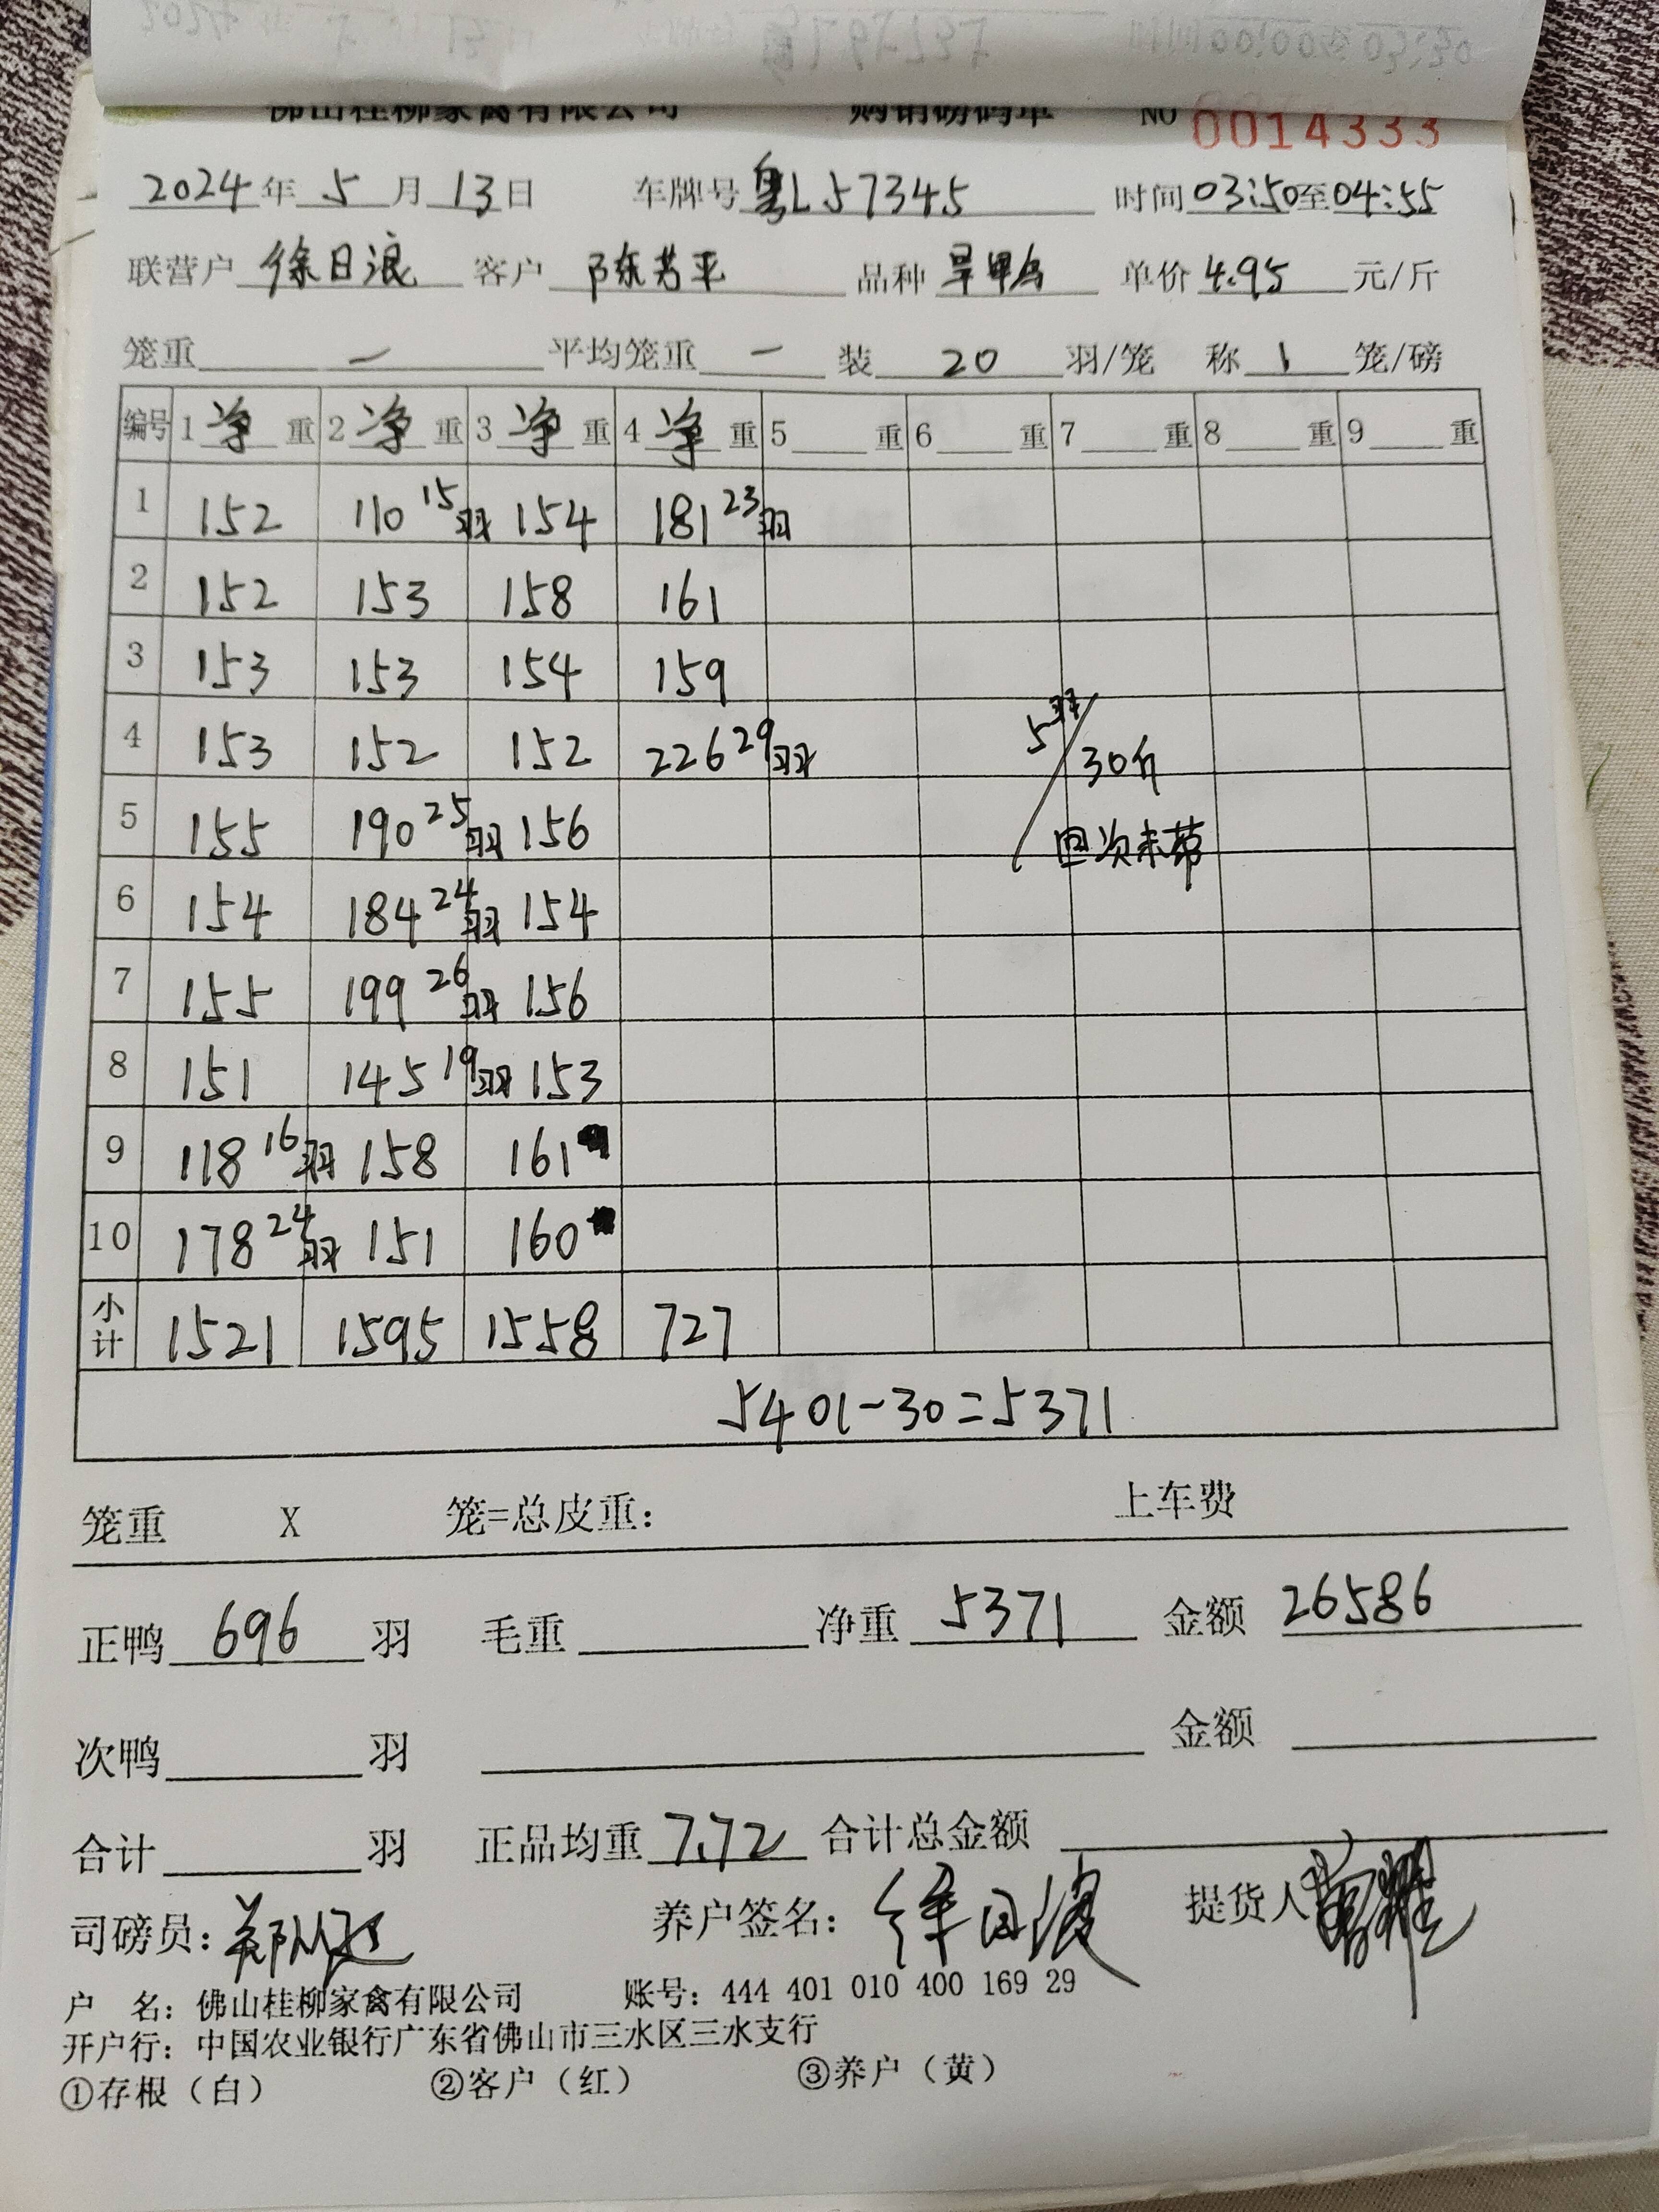 佛山桂柳家禽有限公司 购销磅码单 NO 0014333
2024年 5月 13日 车牌号 粤L57345 时间 03:50至04:55
联营户 徐日浪 客户 陈芳平 品种 单价 4.95 元/斤
笼重 一 平均笼重 一 装 20 羽/笼 称 1 笼/磅
编号 1 净 重 2 净 重 3 净 重 4 净 重 5 重 6 重 7 重 8 重 9 重
1 152 110 15羽 154 181 23羽
2 152 153 158 161
3 153 153 154 159
4 153 152 152 226 29羽 5羽/30斤
5 155 190 25羽 156 回次未带
6 154 184 24羽 154
7 155 199 26羽 156
8 151 145 19羽 153
9 118 16羽 158 161
10 178 24羽 151 160
小计 1521 1595 1558 727
5401-30=5371
笼重 X 笼=总皮重: 上车费
正鸭 696 羽 毛重 净重 5371 金额 26586
次鸭 羽 金额
合计 羽 正品均重 7.72 合计总金额
司磅员: 养户签名: 徐日浪 提货人
户 名: 佛山桂柳家禽有限公司 账号: 444 401 010 400 169 29
开户行: 中国农业银行广东省佛山市三水区三水支行
①存根（白） ②客户（红） ③养户（黄）